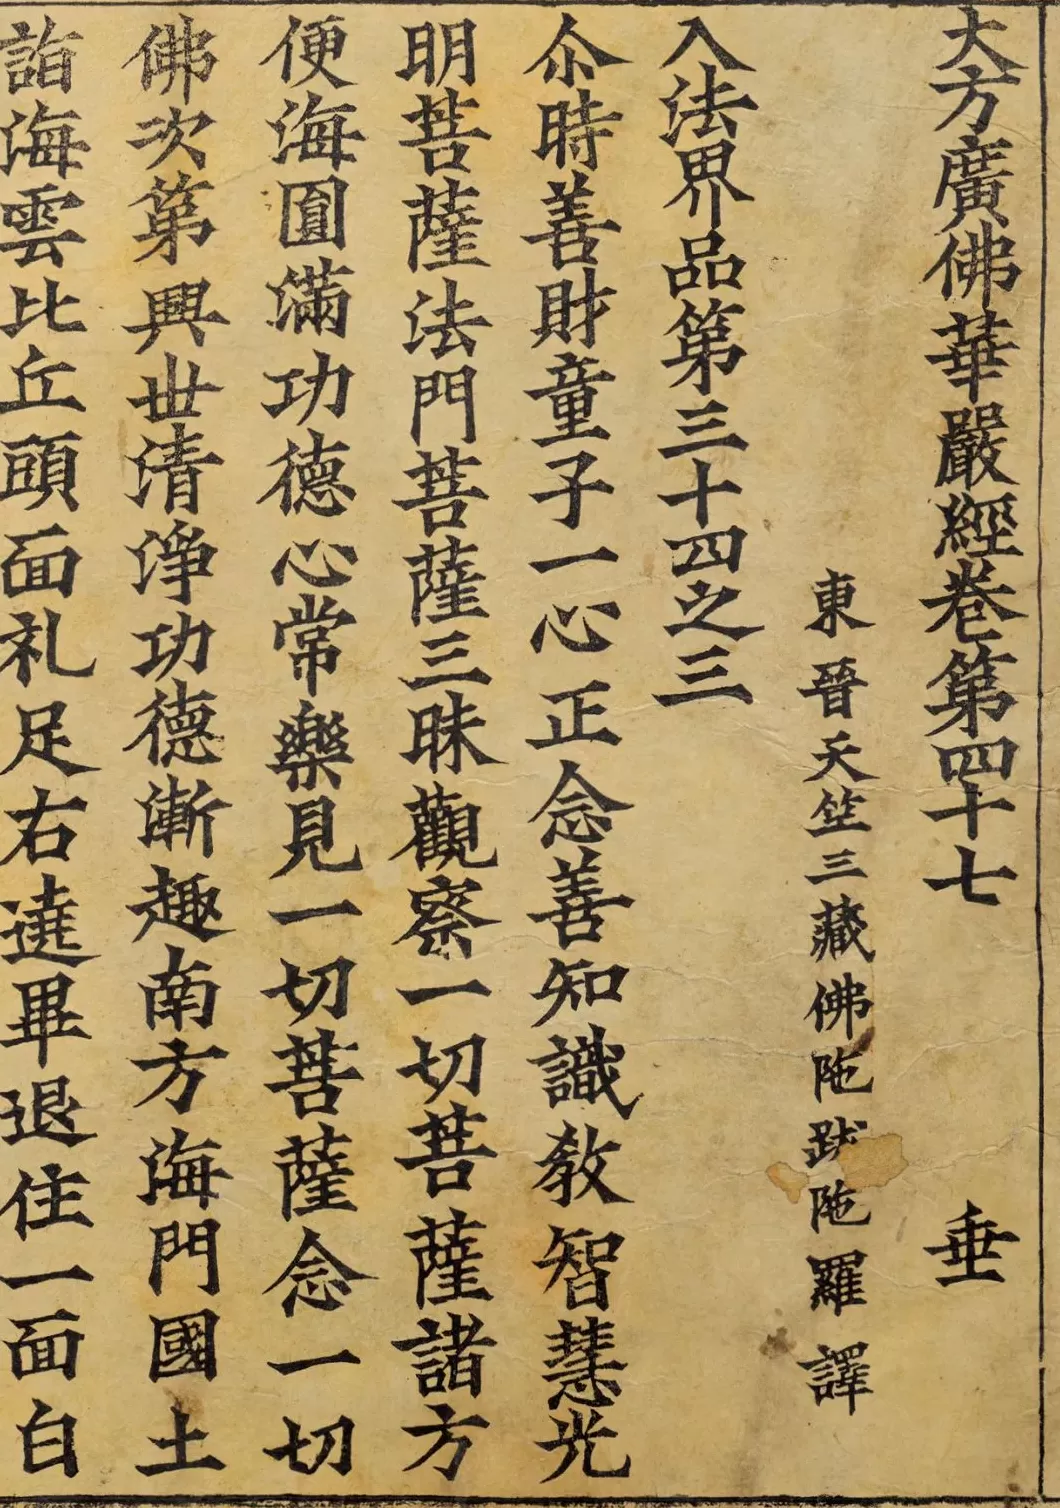 大方廣佛華嚴經卷第四十七　垂
東晉天竺三藏佛陁跋陁羅譯
入法界品第三十四之三
尒時善財童子一心正念善知識教智慧光
明菩薩法門菩薩三昧觀察一切菩薩諸方
便海圎滿功德心常樂見一切菩薩念一切
佛次第興丗清淨功德漸趣南方海門國土
詣海雲比丘頭面礼足右遶畢退住一面白